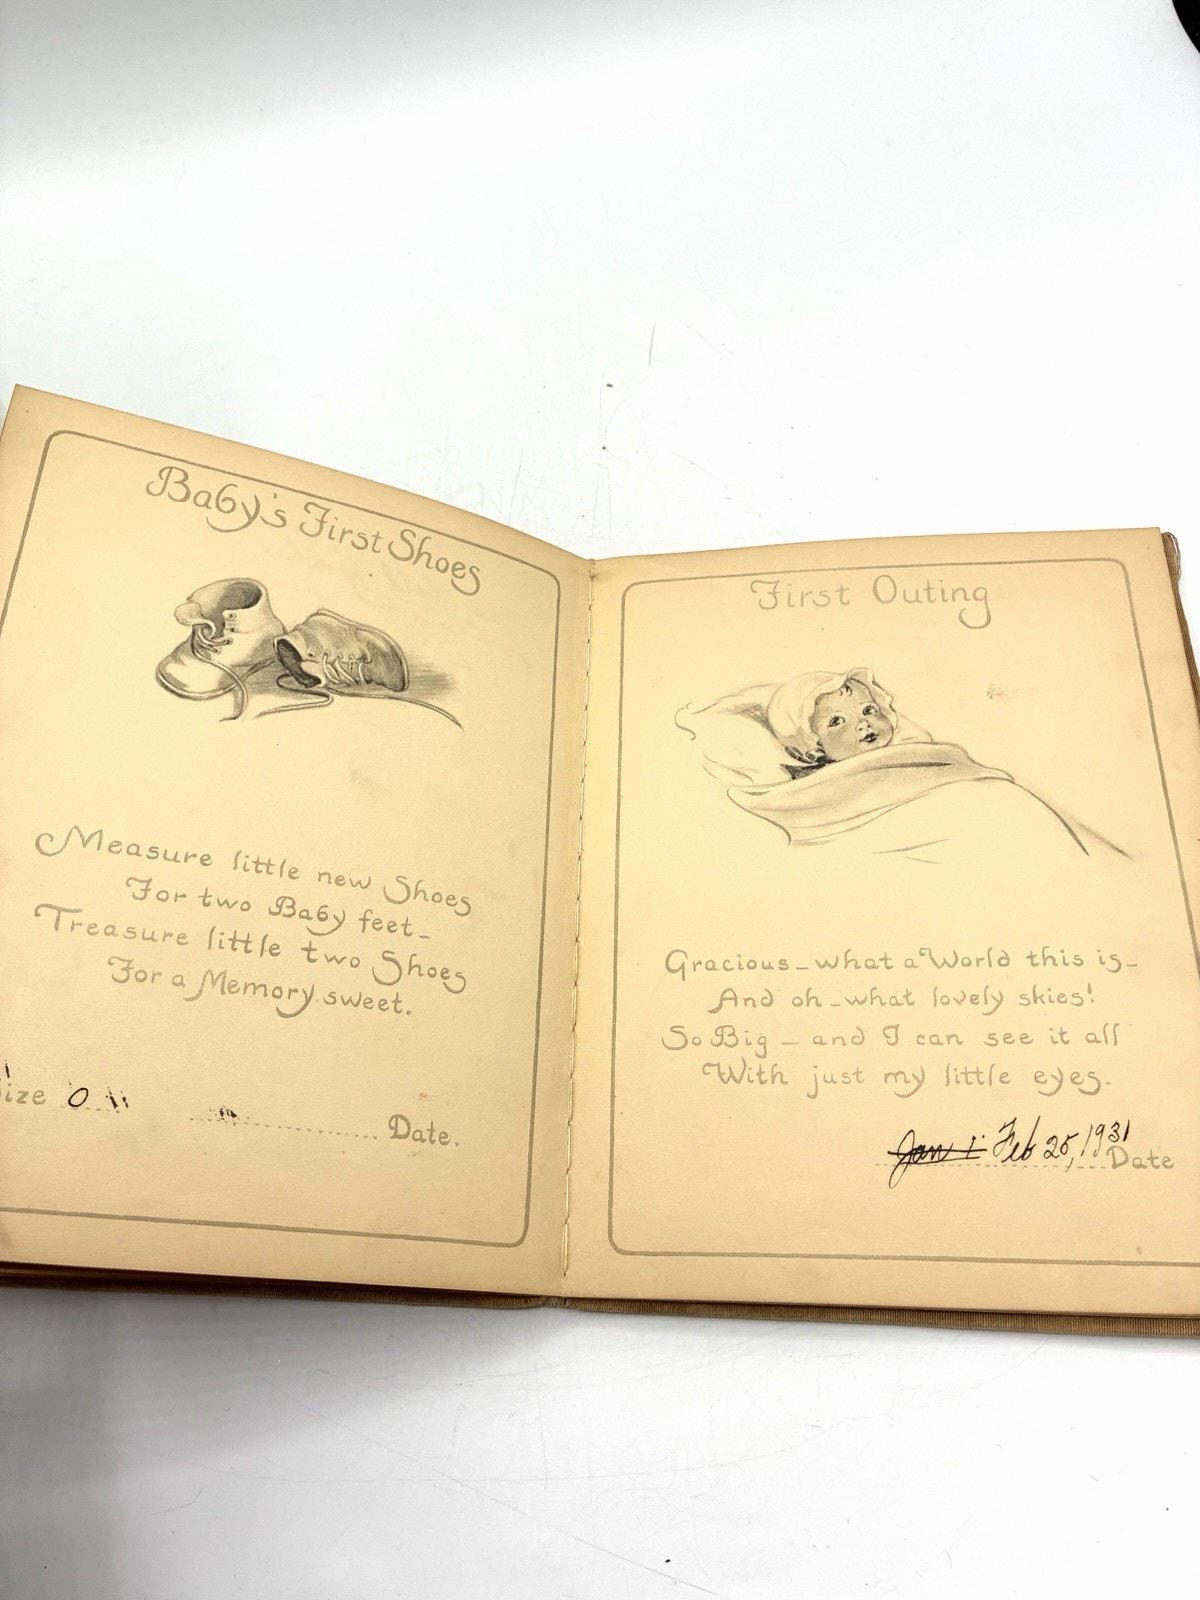 Baby's First Shoes
Measure little new Shoes
For two Baby feet_
Treasure little two Shoes
For a Memory sweet.
ize 0
Date.
First Outing
Gracious_what a World this is_
And oh_what lovely skies!
So Big _ and I can see it all
With just my little eyes.
Jan 1 Feb 25, 1931
Date